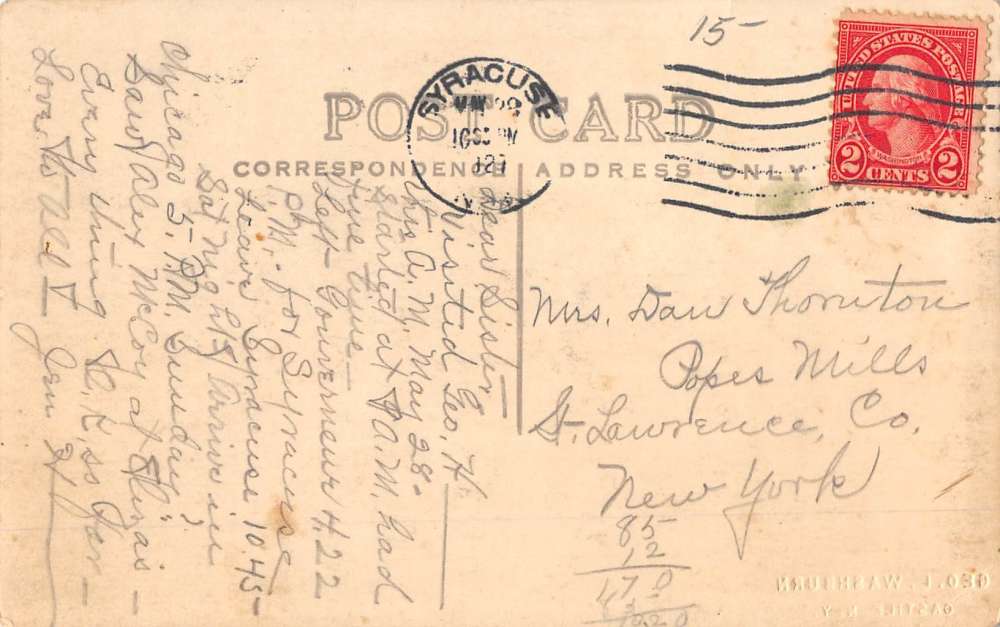 15-
UNITED STATES POSTAGE
WASHINGTON
2 CENTS 2
SYRACUSE
MAY 28
POST CARD
CORRESPONDENCE
ADDRESS ONLY
Dear Sister
Visited Geo. H.
Utis A. M. May 28-
Started at 7 A.M. had
fine time -
Left Gouverneur 4.22
P.M. for Syracuse
Leave Syracuse 10.45-
Sat Night / Arrive in
Chicago 5. P.M. Sunday.
Saw Alex McCoy at
Every thing O.K. so far -
Love to all
Mrs. Dan Thornton
Popes Mills
St. Lawrence, Co.
New York
85
12
170
1020
GEO. L. WASHBURN
CASTILE N. Y.